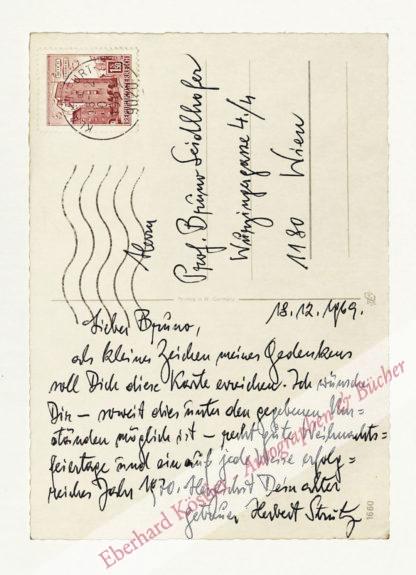 KLAGENFURT
9020
1.50
REPUBLIK ÖSTERREICH
Herrn
Prof. Bruno Seidlhofer
Würzingergasse 4/4
1180 Wien
Printed in W.-Germany
18.12.1969.
Lieber Bruno,
als kleines Zeichen meines Gedenkens
soll Dich diese Karte erreichen. Ich wünsche
Dir – soweit dies unter den gegebenen Um=
ständen möglich ist – recht gute Weihnachts=
feiertage und ein auf jede Weise erfolg=
reiches Jahr 1970. Herzlichst Dein alter
getreuer Herbert Strutz
1660
Eberhard Köstler Autographen & Bücher